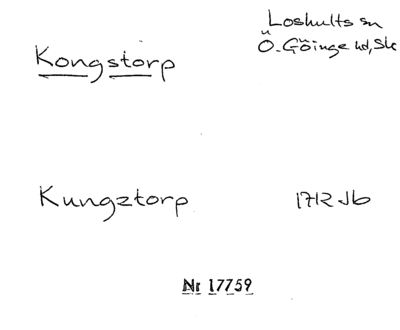 Loshults sn
Ö. Göinge hd, Sk
Kongstorp
Kungztorp
1712 Jb
Nr 17759